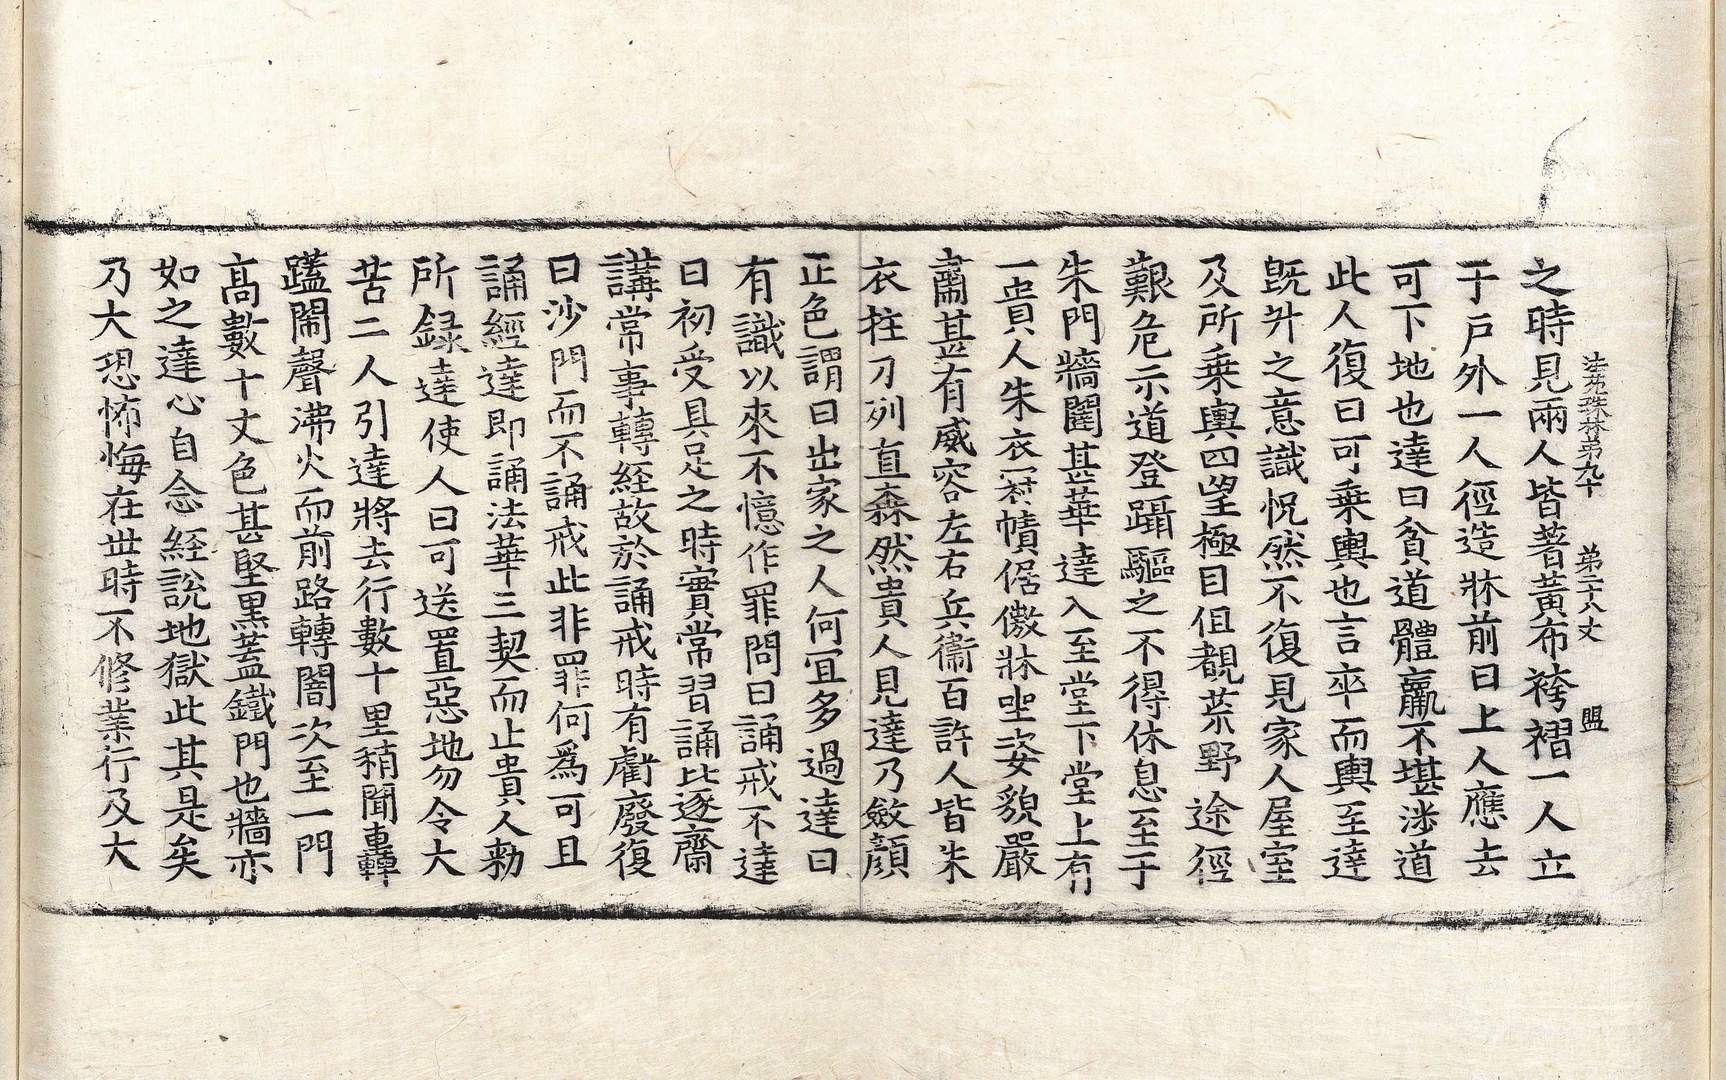 法苑珠林第九十　第二十八丈　盟
之時見兩人皆著黃布袴褶一人立
于戶外一人徑造牀前曰上人應去
可下地也達曰貧道體羸不堪涉道
此人復曰可乗輿也言卒而輿至達
旣升之意識怳然不復見家人屋室
及所乗輿四望極目但覩荒野途徑
艱危示道登躡驅之不得休息至于
朱門牆闥甚華達入至堂下堂上有
一貴人朱衣冠幘倨傲牀坐姿貌嚴
肅甚有威容左右兵衞百許人皆朱
衣拄刀列直森然貴人見達乃斂顔
正色謂曰出家之人何宜多過達曰
有識以來不憶作罪問曰誦戒不達
曰初受具足之時實常習誦比逐齋
講常事轉経故於誦戒時有虧廢復
曰沙門而不誦戒此非罪何爲可且
誦經達即誦法華三契而止貴人勑
所録達使人曰可送置惡地勿令大
苦二人引達將去行數十里稍聞轟
䃯鬧聲沸火而前路轉闇次至一門
高數十丈色甚堅黒蓋鐵門也牆亦
如之達心自念経說地獄此其是矣
乃大恐怖悔在世時不修業行及大